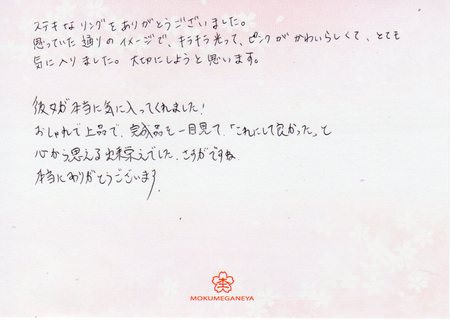 ステキなリングをありがとうございました。
思っていた通りのイメージで、キラキラ光って、ピンクがかわいらしくて、とても
気に入りました。大切にしようと思います。
彼女が本当に気に入ってくれました!
おしゃれで上品で、完成品を一目見て、「これにして良かった」と
心から思える出来栄えでした。さすがですね
本当にありがとうございます
MOKUMEGANEYA